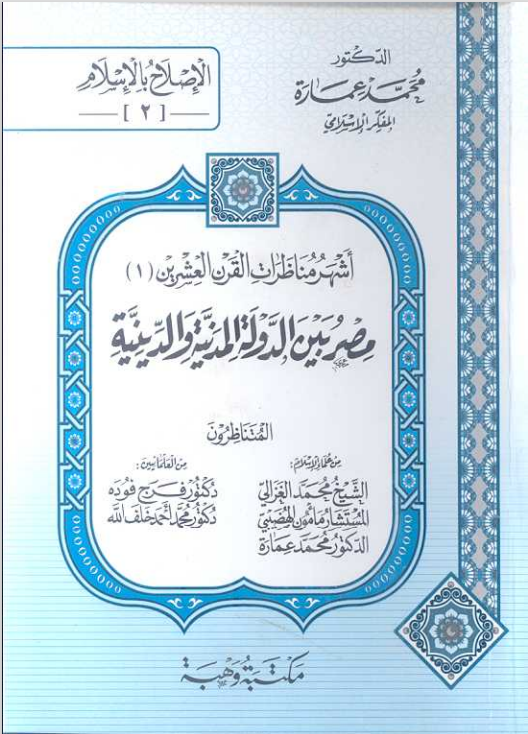 الدكتور
محمد عمارة
المفكر الإسلامي
الإصلاح بالإسلام
[٢]
أشهر مناظرات القرن العشرين (١)
مصر بين الدولة المدنية والدينية
المتناظرون
من علماء الإسلام:
الشيخ محمد الغزالي
المستشار مأمون الهضيبي
الدكتور محمد عمارة
من العلمانيين:
دكتور فرج فوده
دكتور محمد أحمد خلف الله
مكتبة وهبة